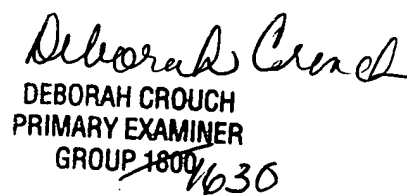 Deborah Crouch
DEBORAH CROUCH
PRIMARY EXAMINER
GROUP 1800 1630